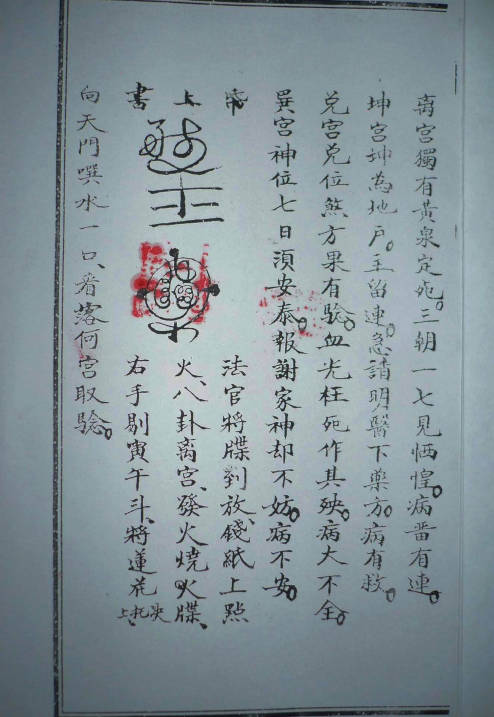 离宮獨有黃泉定死。三朝一七見恓惶。病畨有連。
坤宮坤為地户。主留連。急請明醫下藥方。病有救。
兌宮兌位煞方果有驗。血光枉死作其殃。病大不全。
巽宮神位七日須安泰。報謝家神却不妨。病不安。
法官將牒到放、錢紙上點
火、八卦离宮、發火燒火牒、
書上
右手剔寅午斗、將蓮花
向天門噀水一口、看落何宮取驗。